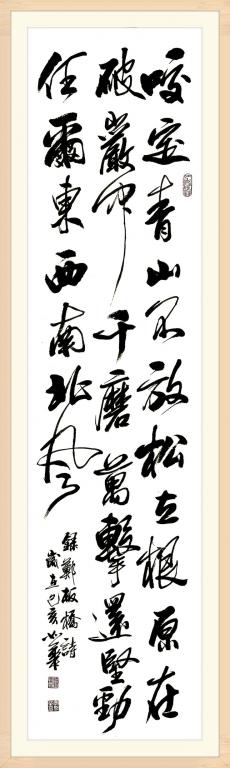 咬定青山不放松立根原在
破巖中千磨萬擊還堅勁
任爾東西南北風
錄鄭板橋詩
歲在己亥